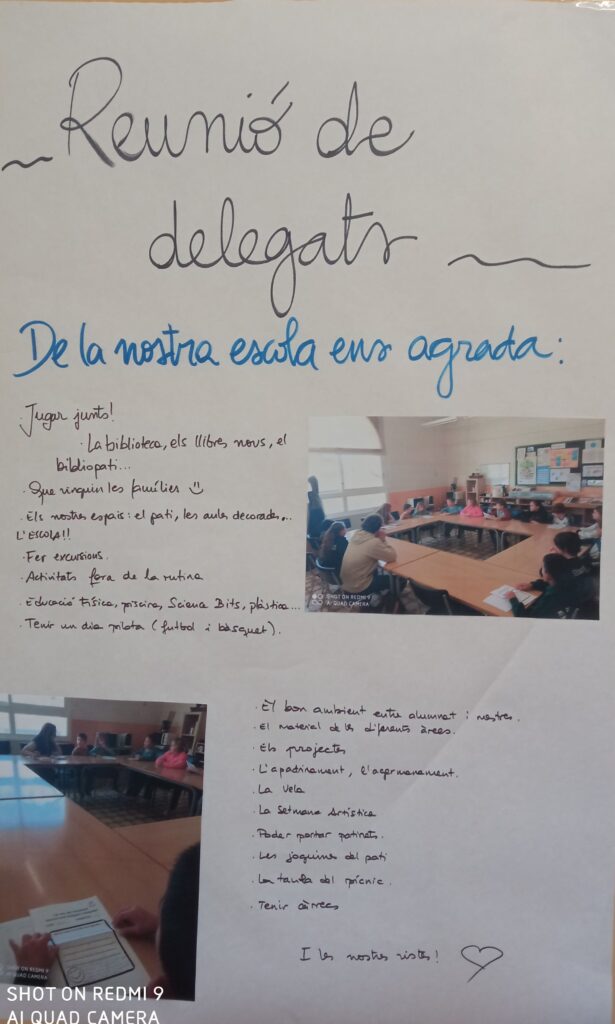 Reunió de
delegats
De la nostra escola ens agrada:
· Jugar junts!
· La biblioteca, els llibres nous, el
bibliopati...
· Que vinguin les famílies
· Els nostres espais: el pati, les aules decorades...
L'ESCOLA!!
· Fer excursions.
· Activitats fora de la rutina
· Educació física, piscina, Science Bits, plàstica...
· Tenir un dia pilota (futbol i bàsquet).
SHOT ON REDMI 9
AI QUAD CAMERA
· El bon ambient entre alumnat i mestres.
· El material de les diferents àrees.
· Els projectes
· L'apadrinament, l'agermanament.
· La vela
· La Setmana Artística
· Poder portar patinets.
· Les joguines del pati
· La taula del pícnic.
· Tenir càrrecs
I les nostres ristes! ♡
SHOT ON REDMI 9
AI QUAD CAMERA
SHOT ON REDMI 9
AI QUAD CAMERA